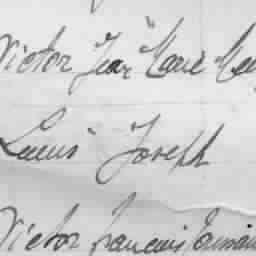 Victor Jean Marie
Louis Joseph
Victor François